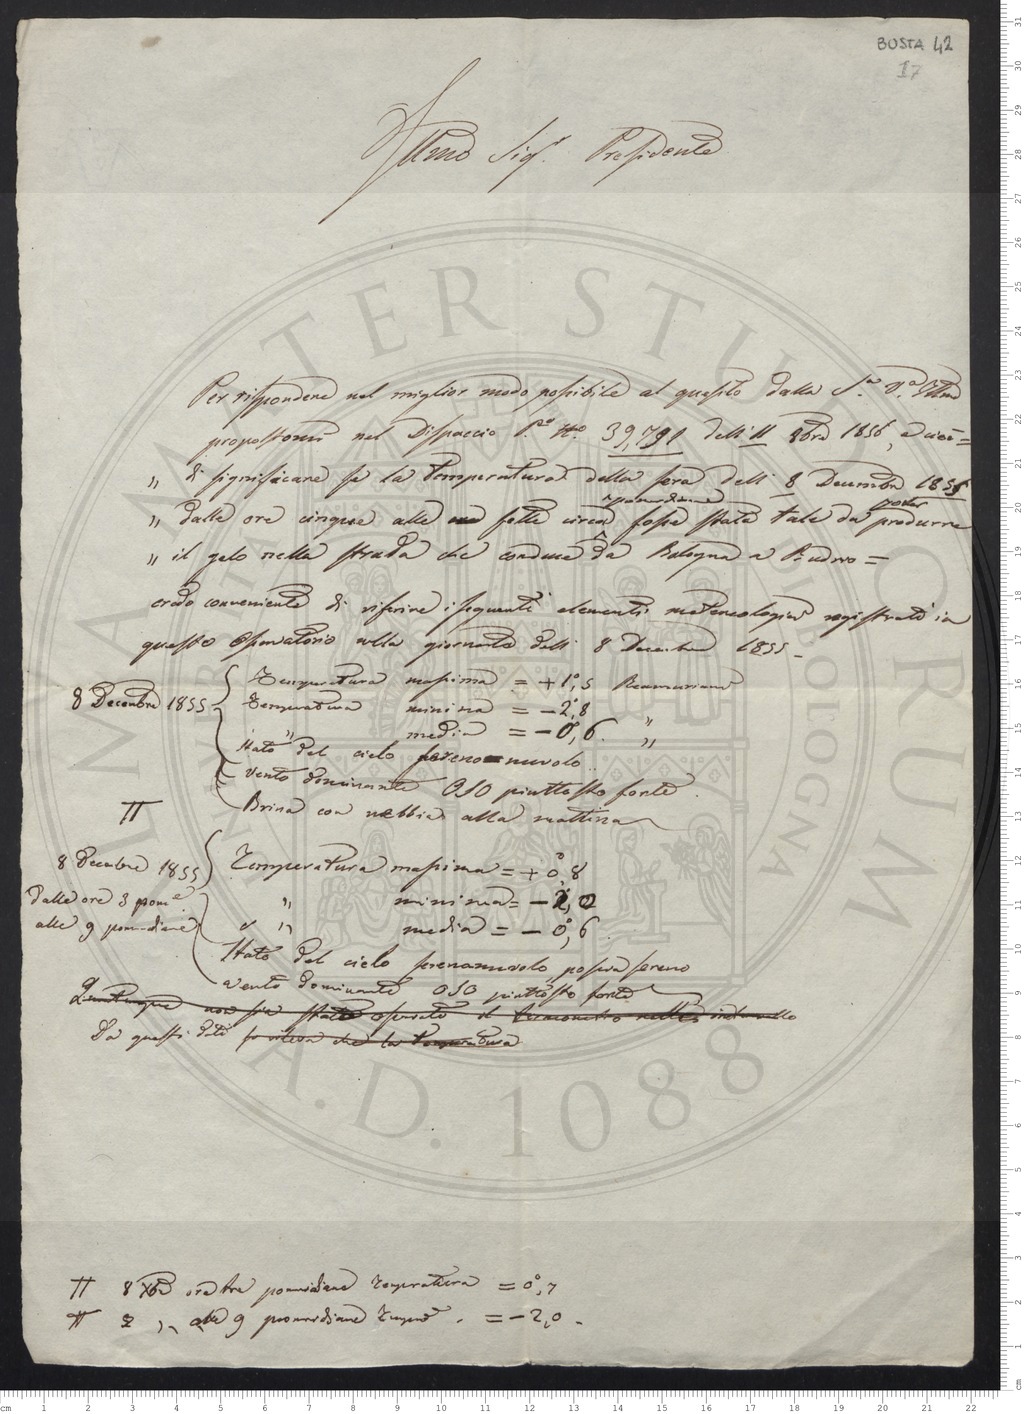 BUSTA 42
17
Illmo Sigr. Presidente
Per rispondere nel miglior modo possibile al quesito dalla S.a V.a Illma
propostomi nel Dispaccio P.o No. 39,791 delli 11 8bre 1856, e cioè =
„ di significare se la temperatura della sera delli 8 Decembre 1855
pomeridiane poter
„ dalle ore cinque alle sette circa fosse stata tale da produrre
„ il gelo nella strada che conduce da Bologna a Budrio =
credo conveniente di riferire i seguenti elementi meteorologici registrati in
questo Osservatorio nella giornata delli 8 Decembre 1855 -
8 Decembre 1855 Temperatura massima = +1°,5 Reamuriana
Temperatura minima = -2°,8 „
„ media = -0°,6. „
Stato del cielo sereno-nuvolo
vento dominante OSO piuttosto forte.
Brina con nebbia alla mattina
8 Decembre 1855 Temperatura massima = +0°,8
dalle ore 3 pome „ minima = -2,0
alle 9 pomeridiane „ media = -0°,6.
Stato del cielo serenonuvolo, poscia sereno
vento dominante OSO piuttosto forte
Quantunque non sia stato osservato il termometro nell' intervallo
Da questi dati si rileva che la temperatura
8 Xbre ore tre pomeridiane Temperatura = 0°,7
„ alle 9 pomeridiane Temp. = -2,0.